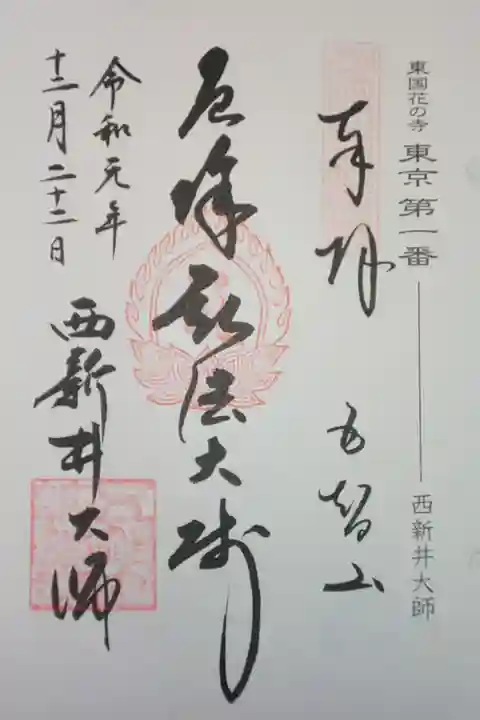 東国花の寺 東京第一番 西新井大師
奉拝 五智山
厄除弘法大師
令和元年
十二月二十二日
西新井大師